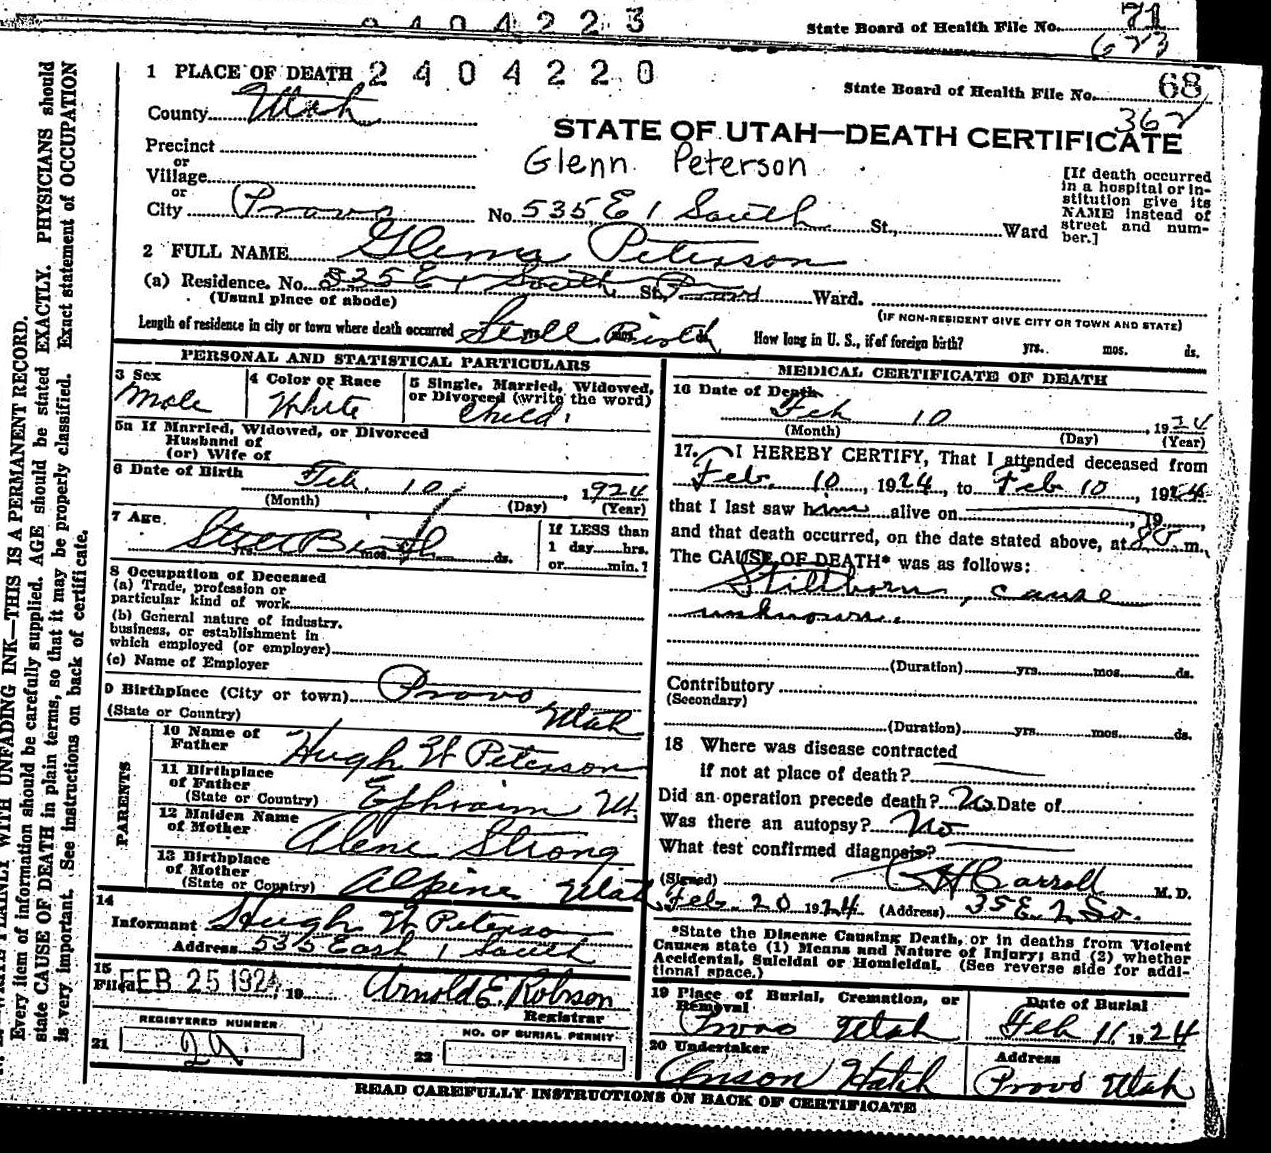 2404223
State Board of Health File No. 71
673
1 PLACE OF DEATH 2404220
State Board of Health File No. 68
362
County Utah
STATE OF UTAH—DEATH CERTIFICATE
Precinct
Glenn Peterson
or
Village
or
City Provo No. 535 E 1 South St., Ward
[If death occurred
in a hospital or in-
stitution give its
NAME instead of
street and num-
ber.]
2 FULL NAME Peterson
(a) Residence. No. 535 E 1 South St. Ward.
(Usual place of abode)
(IF NON-RESIDENT GIVE CITY OR TOWN AND STATE)
Length of residence in city or town where death occurred Still Birth yrs. mos. ds.
How long in U. S., if of foreign birth? yrs. mos. ds.
PERSONAL AND STATISTICAL PARTICULARS
3 Sex
Male
4 Color or Race
White
5 Single, Married, Widowed,
or Divorced (write the word)
Child
5a If Married, Widowed, or Divorced
Husband of
(or) Wife of
6 Date of Birth Feb. 10, 1924
(Month) (Day) (Year)
7 Age
Still Birth
yrs. mos. ds.
If LESS than
1 day hrs.
or min.?
8 Occupation of Deceased
(a) Trade, profession or
particular kind of work
(b) General nature of industry,
business, or establishment in
which employed (or employer)
(c) Name of Employer
9 Birthplace (City or town) Provo
(State or Country) Utah
PARENTS
10 Name of
Father Hugh W Peterson
11 Birthplace
of Father
(State or Country) Ephraim Ut.
12 Maiden Name
of Mother Alene Strong
13 Birthplace
of Mother
(State or Country) Alpine Utah
14
Informant Hugh W Peterson
Address 535 East 1 South
15
Filed FEB 25 1924, 19 Arnold E. Robison
Registrar
REGISTERED NUMBER
21 29
NO. OF BURIAL PERMIT
22
MEDICAL CERTIFICATE OF DEATH
16 Date of Death
Feb 10, 1924
(Month) (Day) (Year)
17. I HEREBY CERTIFY, That I attended deceased from
Feb. 10, 1924, to Feb 10, 1924
that I last saw him alive on , 19
and that death occurred, on the date stated above, at m.
The CAUSE OF DEATH* was as follows:
Stillborn, cause
unknown.
(Duration) yrs. mos. ds.
Contributory
(Secondary)
(Duration) yrs. mos. ds.
18 Where was disease contracted
if not at place of death?
Did an operation precede death? No. Date of
Was there an autopsy? No
What test confirmed diagnosis?
(Signed) Carroll M. D.
Feb. 20 1924 (Address) 35 E. 2 So.
*State the Disease Causing Death, or in deaths from Violent
Causes state (1) Means and Nature of Injury; and (2) whether
Accidental, Suicidal or Homicidal. (See reverse side for addi-
tional space.)
19 Place of Burial, Cremation, or
Removal
Provo Utah
Date of Burial
Feb 11 1924
20 Undertaker
Anson Hatch
Address
Provo Utah
READ CAREFULLY INSTRUCTIONS ON BACK OF CERTIFICATE
WRITE PLAINLY WITH UNFADING INK—THIS IS A PERMANENT RECORD.
Every item of information should be carefully supplied. AGE should be stated EXACTLY. PHYSICIANS should
state CAUSE OF DEATH in plain terms, so that it may be properly classified. Exact statement of OCCUPATION
is very important. See instructions on back of certificate.